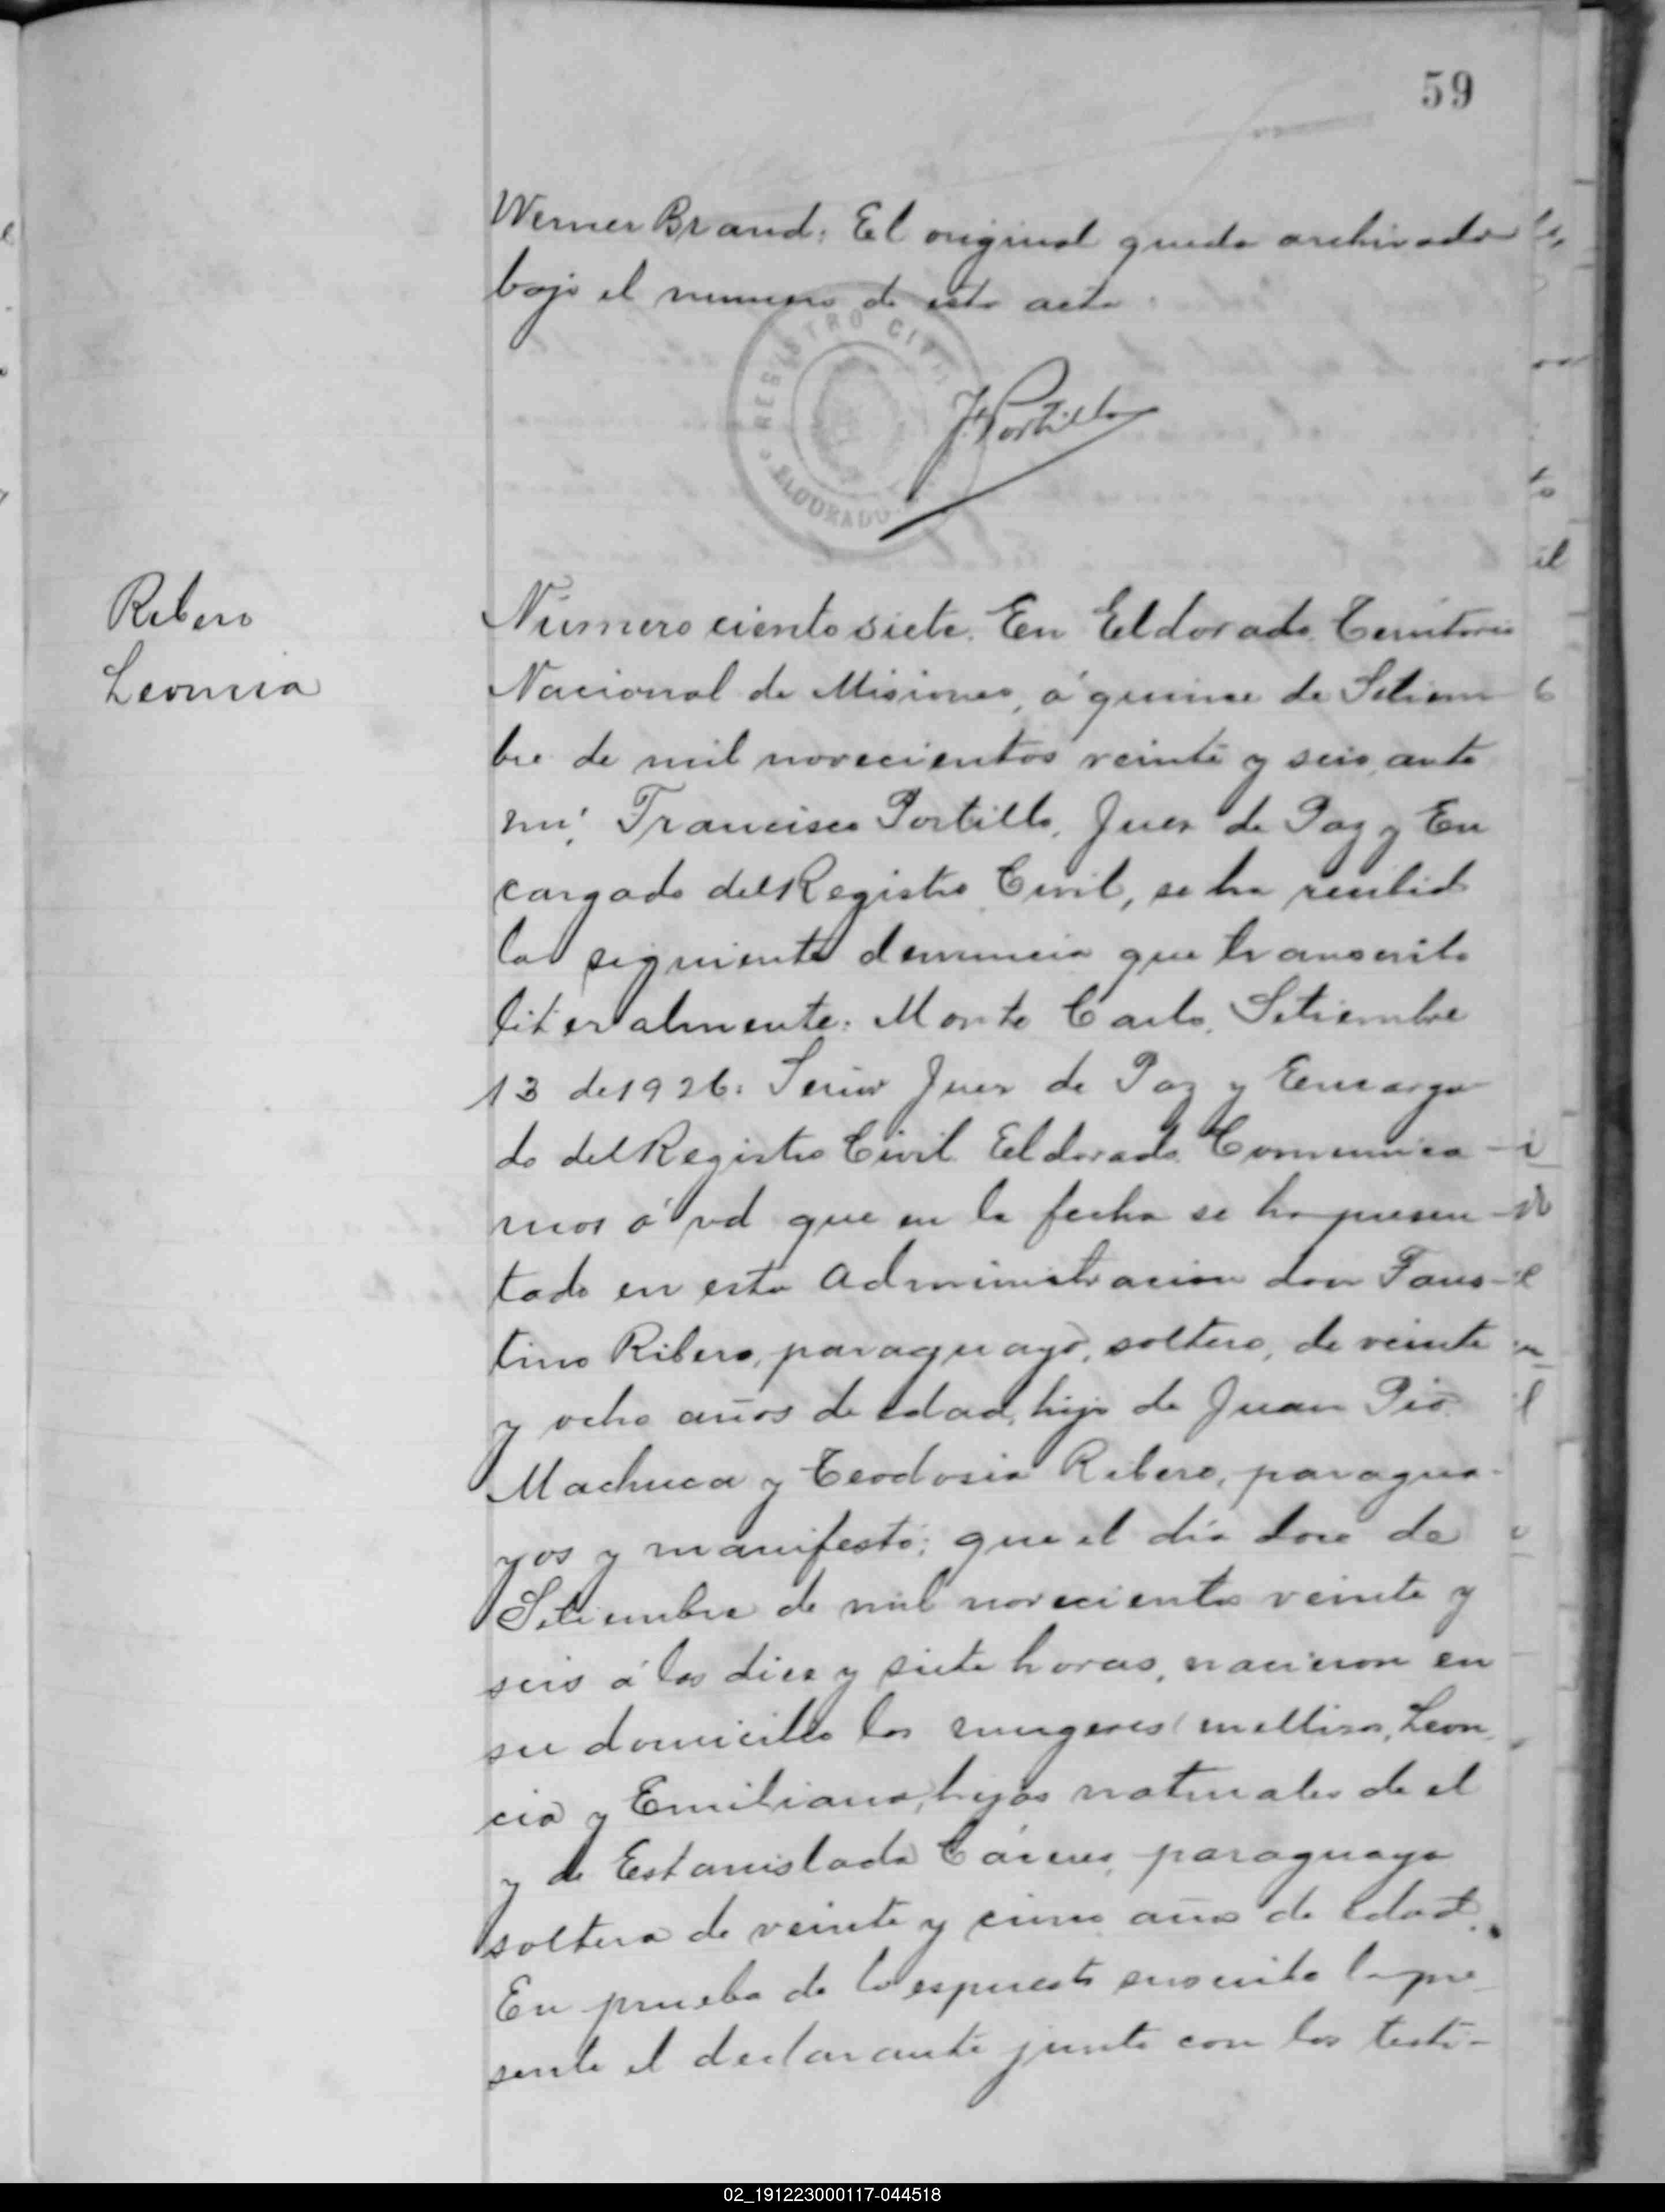 59
Werner Brand: El original queda archivado
bajo el numero de esta acta.
REGISTRO CIVIL
ELDORADO
F. Portillo
Ribero
Leoncia
Número ciento siete. En Eldorado Territorio
Nacional de Misiones, á quince de Setiem
bre de mil novecientos veinte y seis, ante
mi, Francisco Portillo, Juez de Paz y En
cargado del Registro Civil, se ha recibido
la siguiente denuncia que transcrito
literalmente: Monte Carlo, Setiembre
13 de 1926: Señor Juez de Paz y Encarga
do del Registro Civil Eldorado Comunica
mos á vd que en la fecha se ha presen
tado en esta Administracion don Faus-
tino Ribero, paraguayo, soltero, de veinte
y ocho años de edad, hijo de Juan Pio
Machuca y Teodosia Ribero, paragua-
yos y manifestó; que el día doce de
Setiembre de mil novecientos veinte y
seis á las diez y siete horas, nacieron en
su domicilio las mugeres mellisas, Leon
cia y Emiliana, hijas naturales de el
y de Estanislada paraguaya
soltera de veinte y cinco años de edad.
En prueba de lo espuesto suscrita la pre
sente el declarante junto con los testi-
02_191223000117-044518